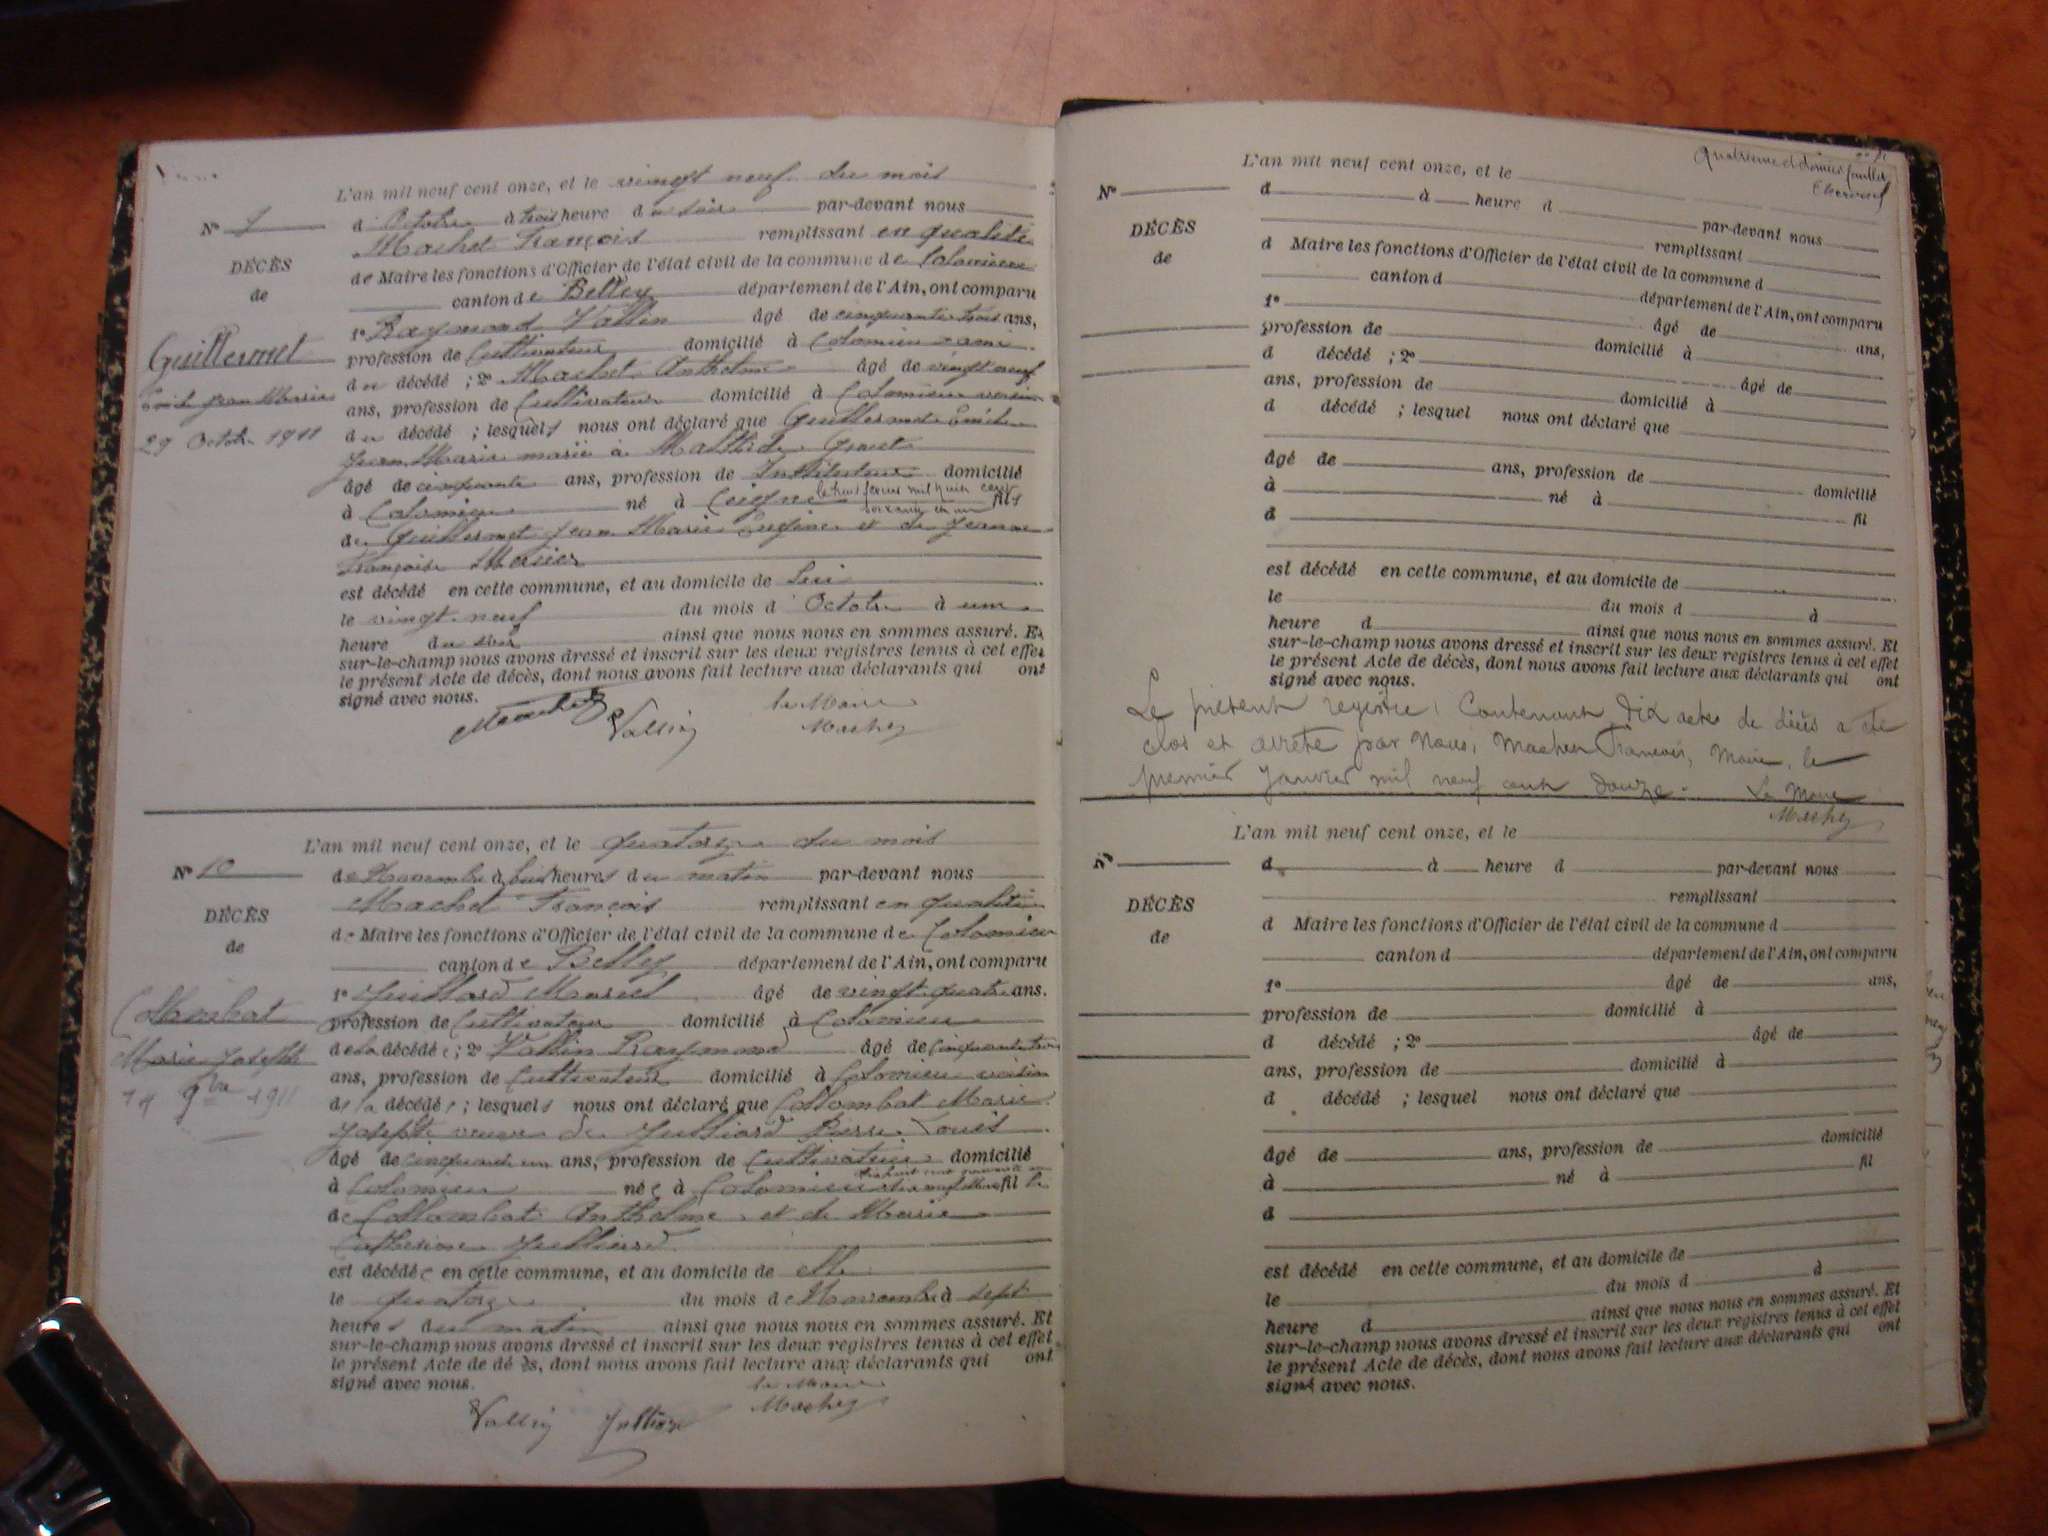 L'an mil neuf cent onze, et le vingt neuf du mois
N° 9
d'Octobre à trois heure du soir par-devant nous
Machet François remplissant en qualité
DÉCÈS
de Maire les fonctions d'Officier de l'état civil de la commune de Colomieu
de
canton de Belley département de l'Ain, ont comparu
1° Raymond Vallin âgé de cinquante trois ans,
Guillermet
profession de Cultivateur domicilié à Colomieu ami
du décédé ; 2° Machet Anthelme âgé de vingt neuf
Emile Jean Marie
ans, profession de Cultivateur domicilié à Colomieu voisin
29 Octobre 1911
du décédé ; lesquels nous ont déclaré que Guillermet Emile
Jean Marie marié à Mathilde
âgé de cinquante ans, profession de Instituteur domicilié
à Colomieu né à Ceignes le huit février mil huit cent soixante et un fils
de Guillermet Jean Marie Eugène et de Jeanne
Françoise Mercier
est décédé en cette commune, et au domicile de lui
le vingt neuf du mois d'Octobre à une
heure du soir ainsi que nous nous en sommes assuré. Et
sur-le-champ nous avons dressé et inscrit sur les deux registres tenus à cet effet
le présent Acte de décès, dont nous avons fait lecture aux déclarants qui ont
signé avec nous.
Machet Vallin
le Maire
Machet
L'an mil neuf cent onze, et le quatorze du mois
N° 10
de Novembre à huit heures du matin par-devant nous
Machet François remplissant en qualité
DÉCÈS
de Maire les fonctions d'Officier de l'état civil de la commune de Colomieu
de
canton de Belley département de l'Ain, ont comparu
1° Juilland Marius âgé de vingt quatre ans.
Collombat
profession de Cultivateur domicilié à Colomieu
Marie Josephte
de la décédée ; 2° Vallin Raymond âgé de cinquante trois
ans, profession de Cultivateur domicilié à Colomieu voisin
14 9bre 1911
de la décédée ; lesquels nous ont déclaré que Collombat Marie
Josephte veuve de Julliard Pierre Louis
âgé de cinquante un ans, profession de Cultivatrice domicilié
à Colomieu née à Colomieu fille
de Collombat Anthelme et de Marie
Catherine Julliard
est décédée en cette commune, et au domicile de elle
le quatorze du mois de Novembre à sept
heures du matin ainsi que nous nous en sommes assuré. Et
sur-le-champ nous avons dressé et inscrit sur les deux registres tenus à cet effet
le présent Acte de décès, dont nous avons fait lecture aux déclarants qui ont
signé avec nous.
le Maire
Machet
Vallin Julliard
Quatrième et dernier feuillet
L'an mil neuf cent onze, et le
N°
d à heure d par-devant nous
DÉCÈS
remplissant
de
d Maire les fonctions d'Officier de l'état civil de la commune d
canton d département de l'Ain, ont comparu
1° âgé de ans,
profession de domicilié à
d décédé ; 2° âgé de
ans, profession de domicilié à
d décédé ; lesquel nous ont déclaré que
âgé de ans, profession de domicilié
à né à fil
d
est décédé en cette commune, et au domicile de
le du mois d à
heure d ainsi que nous nous en sommes assuré. Et
sur-le-champ nous avons dressé et inscrit sur les deux registres tenus à cet effet
le présent Acte de décès, dont nous avons fait lecture aux déclarants qui ont
signé avec nous.
Le présent registre, Contenant Dix actes de décès a été
clos et arrêté par Nous, Machet François, Maire, le
premier Janvier mil neuf cent douze. Le Maire
Machet
L'an mil neuf cent onze, et le
N°
d à heure d par-devant nous
remplissant
DÉCÈS
d Maire les fonctions d'Officier de l'état civil de la commune d
de
canton d département de l'Ain, ont comparu
1° âgé de ans,
profession de domicilié à
d décédé ; 2° âgé de
ans, profession de domicilié à
d décédé ; lesquel nous ont déclaré que
âgé de ans, profession de domicilié
à né à fil
d
est décédé en cette commune, et au domicile de
le du mois d à
heure d ainsi que nous nous en sommes assuré. Et
sur-le-champ nous avons dressé et inscrit sur les deux registres tenus à cet effet
le présent Acte de décès, dont nous avons fait lecture aux déclarants qui ont
signé avec nous.